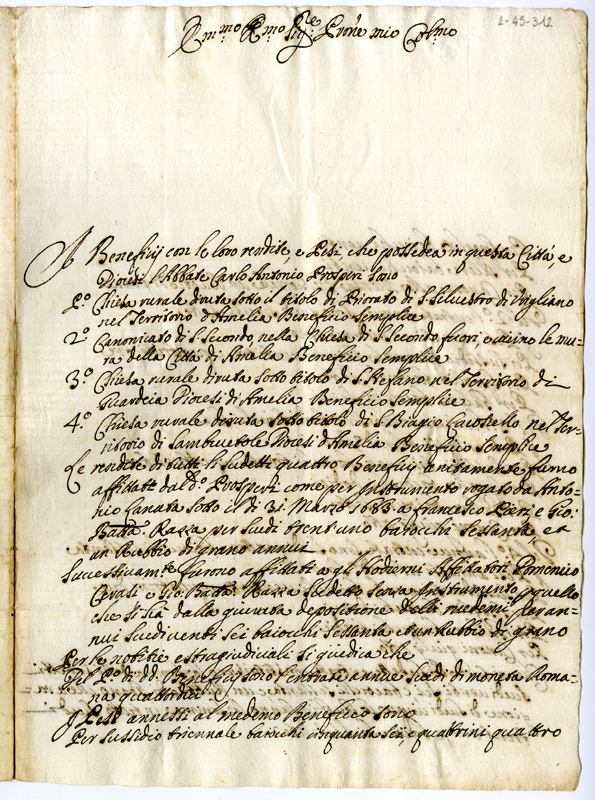 2-45-312
Em.mo R.mo Sig.re Prone mio Col.mo
I Beneficij con le loro rendite, e Pesi, che possedea in questa Città, e
Diocesi l'Abbate Carlo Antonio Prosperi sono
P.o Chiesa rurale diruta sotto il titolo di Priorato di S. Silvestro di
nel Territorio d'Amelia Beneficio Semplice
2.o Canonicato di S. Secondo, nella Chiesa di S. Secondo fuori, e vicino le mu=
ra della Città di Amelia Beneficio Semplice
3.o Chiesa rurale diruta sotto titolo di S. Stefano nel Territorio di
Guardeia Diocesi di Amelia Beneficio Semplice
4.o Chiesa rurale diruta sotto titolo di S. Biagio nel Ter=
ritorio di Sambucetole Diocesi d'Amelia Beneficio Semplice
Le rendite di tutti li sudetti quattro Beneficij unitamente furno
affittate dal d.o Prosperi come per Instrumento rogato da Anto=
nio sotto li di 31. Marzo 1683 a Francesco e Gio:
Batta. Razza per scudi trent'uno baiocchi sessanta, et
un Rubbio di grano annui
Successivam.te furono affittati a gli Hodierni Affittatori Domenico
Cerasi e Gio: Batta. Razza sudetto senza Instrumento, quello
che si sia dalla giurata depositione delli medemi per an=
nui scudi venti sei baiocchi sessanta et un Rubbio di grano
Per le notitie estragiudiciali si giudica che
Del P.o di dd. Beneficij sono l'entrate annue scudi di moneta Roma=
na quattordici
I Pesi annessi al medemo Beneficio sono
Per sussidio triennale baiocchi cinquanta sei, e quattrini quattro